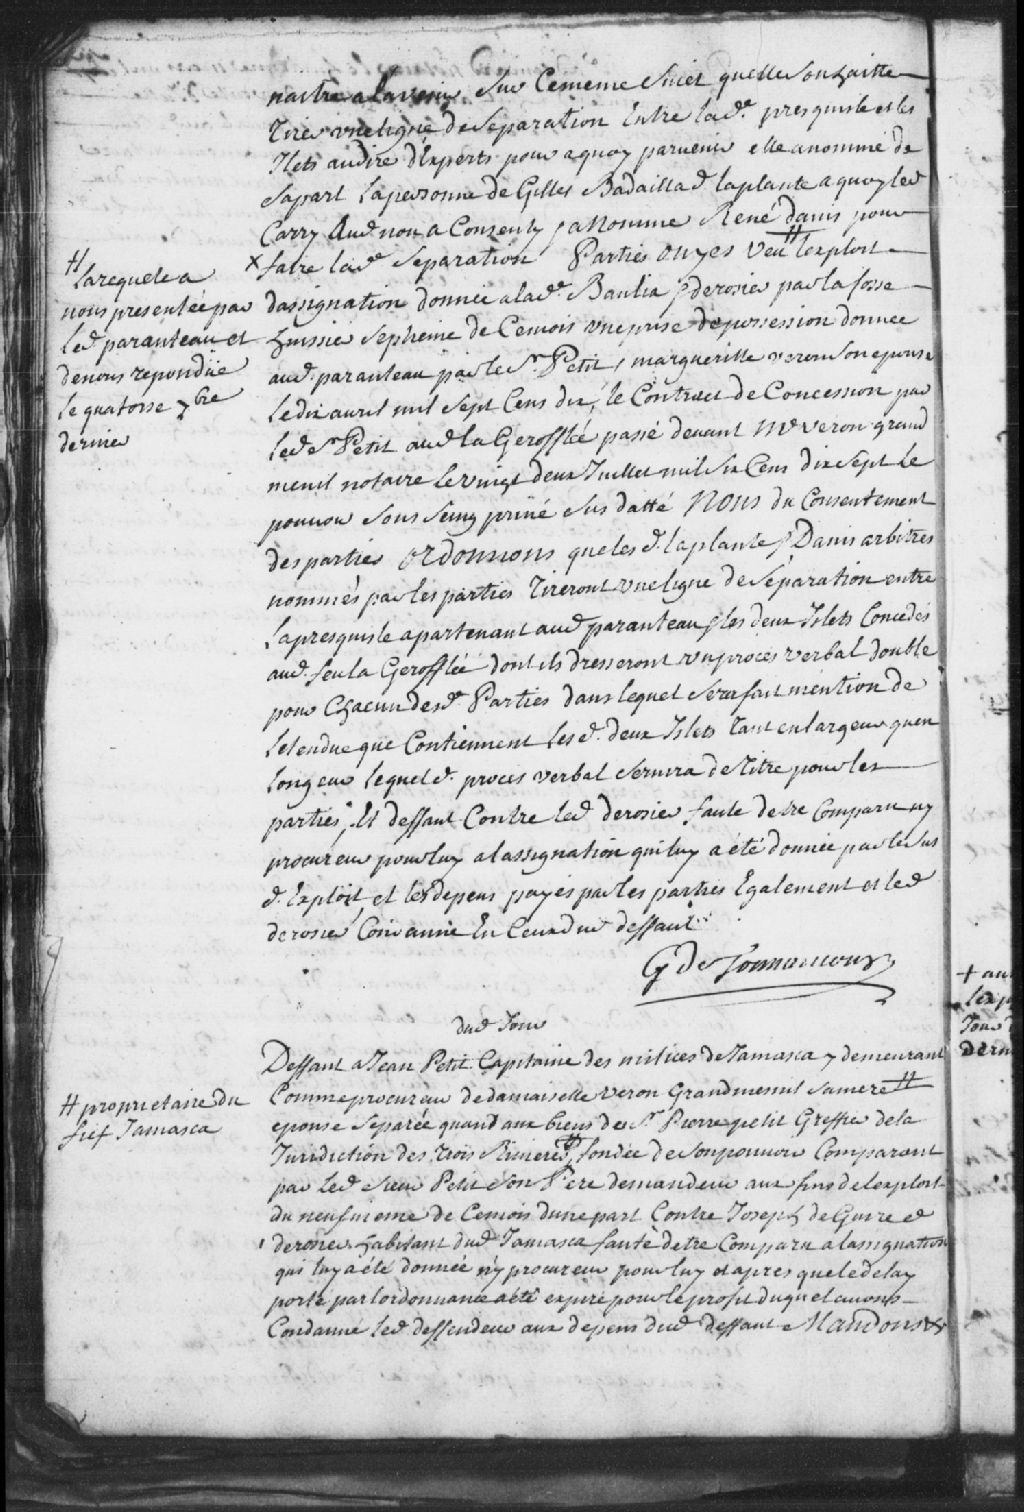 naitre alavenir sur Cememe Sujet quelle Souhaitte
tirer une ligne de Separation Entre lad.e presquisle et les
Ilets au dire d'Experts pour a quoy parvenir elle a nommé de
Sa part la personne de Gilles Badailla d laplante a quoy led
Carry Aud nom a Consenty & a Nommé René danis pour
faire lad.e Separation Parties ouyes veu # lexploit
dassignation donnée alad.e Baulia & derosier par la fosse
huissier Septieme de Cemois une prise de possession donnée
aud. paranteau par le Sr. Petit & margueritte veron Son epouse
le dix avril mil Sept Cens dix, le Contract de Concession par
led. Sr. Petit aud la Gerofflée passé devant Me veron grand
menil notaire le vingt deux Juillet mil Six Cens dix Sept le
pouvoir Sous Seing privé Sus datté Nous du Consentement
des parties ordonnons que les d. laplante & Danis arbitres
nommés par les parties Tireront une ligne de Séparation entre
la presquisle apartenant aud paranteau & les deux Islets Concedés
aud. feu la Gerofflée dont ils dresseront un procès verbal double
pour Chacun desd.e Parties dans lequel Sera fait mention de
letendue que Contiennent les d. deux Islets tant en largeur quen
longeur lequel d. procès verbal Servira de Titre pour les
parties, Et deffaut Contre led derosier faute de tre Comparu ny
procureur pour luy a lassignation qui luy a été donnée par le Sus
d. Exploit et les depens payés par les parties Egalement et led
derosier Condamné En Ceux du deffaut
G De Tonnancour
# la requete a
nous presentée par
led paranteau et
de nous repondüe
le quatorse 7bre
dernier
dud Jour
Deffaut a Jean Petit Capitaine des milices de Jamasca y demeurant
Comme procureur de damaiselle veron Grandmesnil Sa mere #
eponse Separée quand aux biens de Sr. Pierre petit Greffier de la
Juridiction des trois Rivieres, fondée de Son pouvoir Comparant
par led. Sieur Petit Son Pere demandeur aux fins de lexploit
du neufvieme de Cemois dune part Contre Joseph de Guire d
derosier habitant dud Jamasca faute detre Comparu a lassignation
qui luy a été donnée ny procureur pour luy et apres que le delay
porté par lordonnance a été expiré pour le profit duquel avons
Condamné led deffendeur aux depens dud deffaut Mandons &
# proprietaire du
fief Jamasca
+ au
lexp
Jour
dern